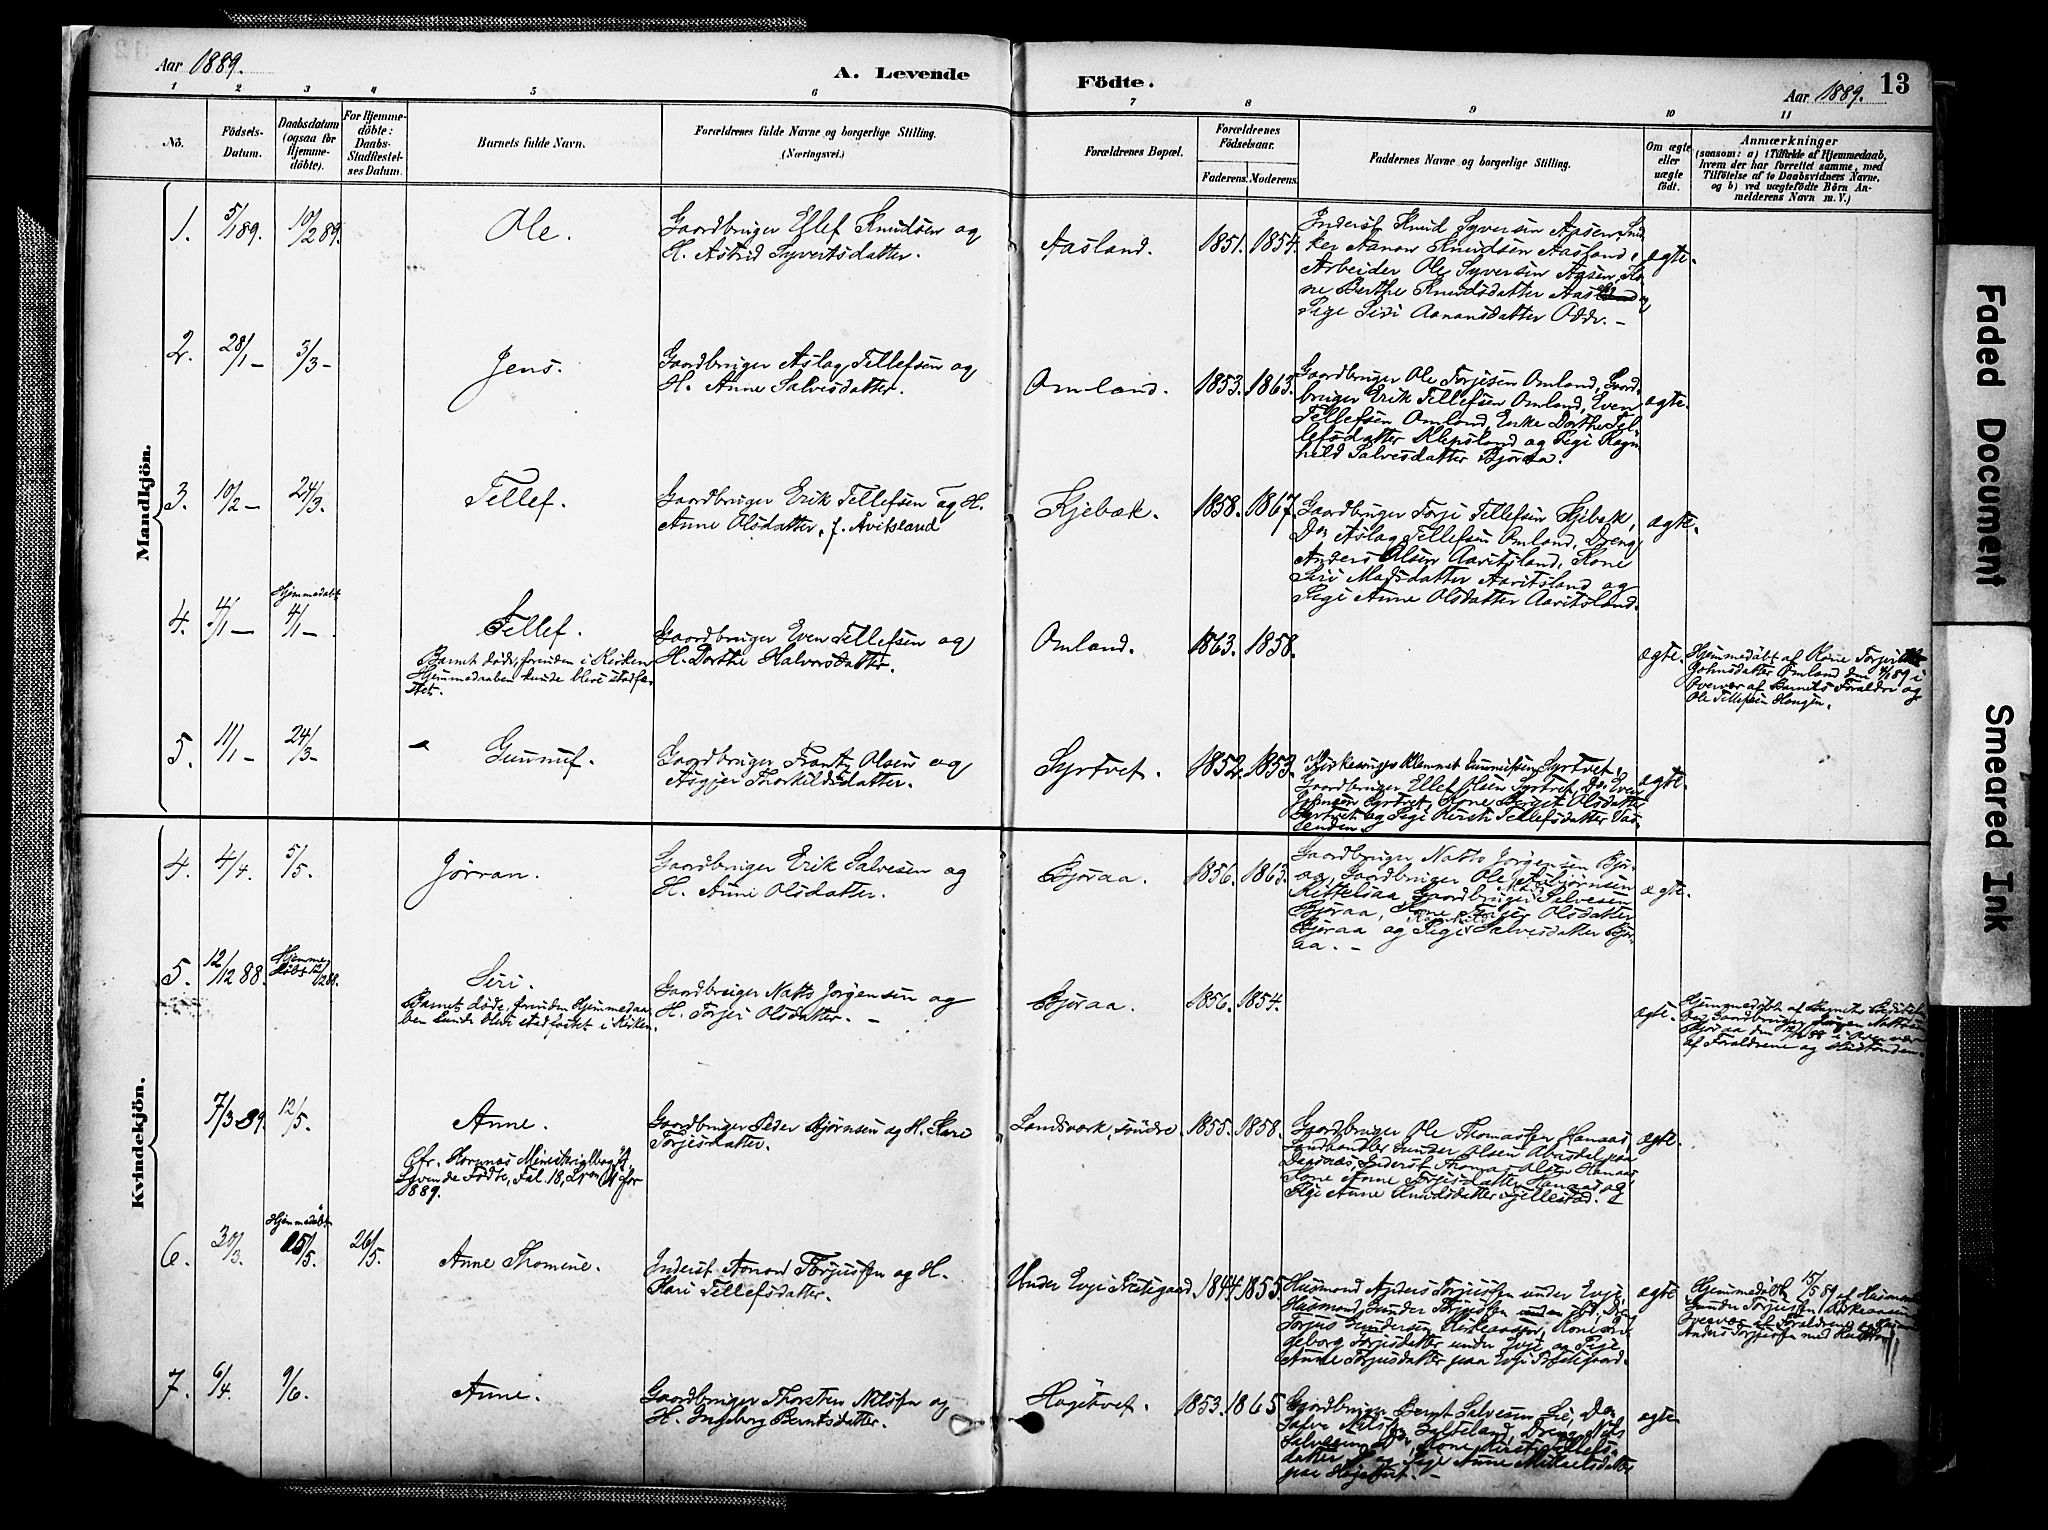 Aar 1889.
A. Levende
Födte.
Aar 1889.
13
1 2 3 4 5 6 7 8 9 10 11
No.
Födsels-
Datum.
Daabsdatum
(ogsaa for
Hjemme-
döbte).
For Hjemme-
döbte:
Daabs-
Stadfæstel-
ses Datum.
Barnets fulde Navn.
Forældrenes fulde Navne og borgerlige Stilling.
(Næringsvei.)
Forældrenes Bopæl.
Forældrenes
Födselsaar.
Faderens.
Moderens.
Faddernes Navne og borgerlige Stilling.
Om ægte
eller
uægte
födt.
Anmærkninger
(saasom: a) i Tilfælde af Hjemmedaab,
hvem der har forrettet samme, med
Tilföielse af to Daabsvidners Navne,
og b) ved uægtefödte Börn An-
melderens Navn m. V.)
Mandkjön.
1. 5/1 89. 10/2 89.
Ole.
Gaardbruger Ellef Knudsen og
H. Astrid Syvertsdatter.
Aasland.
1851. 1854.
Inderst Knud Syversen Aasen, Snik
ker Aanon Knudsen Aasland,
Arbeider Ole Syversen Aasen, Ko
ne Berthe Knudsdatter Aasland og
Pige Siri Aanonsdatter Odde. –
ægte.
2. 28/1 – 3/3 –
Jens.
Gaardbruger Aslag Tellefsen og
H. Anne Salvesdatter.
Omland.
1853. 1863.
Gaardbruger Ole Torjesen Omland, Gaard-
bruger Erik Tellefsen Omland, Even
Tellefsen Omland, Enke Dorthe Tel-
lefsdatter Klepsland og Pige Ragn
hild Salvesdatter Bjøraa.
ægte.
3. 10/2 – 24/3.
Tellef.
Gaardbruger Erik Tellefsen og H.
Anne Olsdatter, f. Avitsland
Kjebæk.
1858. 1867.
Gaardbruger Torje Tellefsen Kjebæk,
Do Aslag Tellefsen Omland, Dreng
Anders Olsen Aavitsland, Kone
Siri Madsdatter Aavitsland og
Pige Anne Olsdatter Aavitsland.
ægte.
4. 4/1 – Hjemmedøbt
4/1 –
Tellef.
Barnet døde, førinden i Kirken
Hjemmedaaben kunde blive stadfæ-
stet.
Gaardbruger Even Tellefsen og
H. Dorthe Halvorsdatter.
Omland.
1863. 1858.
ægte.
Hjemmedøbt af Kone Torjer
Johnsdatter Omland den 4/1 89 i
Overvær af Barnets Forældre og
Ole Tellefsen Haugen.
5. 11/1 – 24/3 –
Gunnuf.
Gaardbruger Frantz Olsen og
Asgjer Thorkildsdatter.
Syrtvet.
1852. 1853.
Kirkesanger Klemmet Gunnufsen Syrtvet,
Gaardbruger Ellef Olsen Syrtvet, Do Even
Johnsen Syrtvet, Kone Berget Olsdatter
Syrtvet og Pige Kirsti Tellefsdatter
ægte.
Kvindekjön.
4. 4/4. 5/5.
Jørran.
Gaardbruger Erik Salvesen og
H. Anne Olsdatter.
Bjøraa.
1856. 1863.
Gaardbruger Natts Jørgensen Bjør-
aa, Gaardbruger Ole Asbjørnsen
Kittelsaa, Gaardbruger Salvesen
Bjøraa, Kone Torjer Olsdatter
Bjøraa og Pige Salvesdatter Bjør-
aa. –
ægte.
5. 12/12 88. Hjemme
døbt 12/12 88.
Siri.
Barnet døde, førinden Hjemmedaa-
ben kunde blive stadfæstet i Kirken.
Gaardbruger Natts Jørgensen og
H. Torjer Olsdatter. –
Bjøraa.
1856. 1854.
ægte.
Hjemmedøbt af Barnets
Gaardbruger Jørgen Nattsen
Bjøraa den 12/12 88 i Overvær
af Forældrene og
7/3 89. 12/5.
Anne.
Cfr. Hornnæs Ministerialbog A
Levende Fødte, Fol. 18, for
1889.
Gaardbruger Peder Bjørnsen og H. Kari
Torjesdatter.
Landsværk, søndre.
1855. 1858.
Gaardbruger Ole Thomassen Hanaas,
Landhandler Gunder Olsen Abusdal paa
Dagsnæs, Inderst Thomas Olsen Hanaas
Kone Anne Torjesdatter Hanaas og
Pige Anne Knudsdatter Fjellestad.
ægte.
6. 30/3. Hjemmedøbt
15/5. 26/5.
Anne Thomine.
Inderst Aanond Torjussen og H.
Kari Tellefsdatter.
Under Evje Præstegaard
1844. 1855.
Husmand Anders Torjussen under Evje,
Husmand Gunder Torjussen Do, Dre
Torjus Gundersen Kirkeaasen, Kone In-
geborg Torjusdatter under Evje og Pige
Anne Torjusdatter paa Evje Præstegaard.
ægte
Hjemmedøbt 15/5 89 af Husmand
Gunder Torjussen Kirkeaasen i
Overvær af Forældrene og
Anders Torjussen med Hustru.
7. 6/4. 9/6.
Anne.
Gaardbruger Thorsten Nilssen og
H. Ingeborg Berntsdatter.
Høgetvet.
1853. 1865
Gaardbruger Bernt Salvesen Lie, Do
Salve Nilssen Dreng Nils
Salvesen Do, Kone Kirsti Tellefs-
datter og Pige Anne Mikkelsdatter
paa Høgetvet. –
ægte
Faded Document
Smeared Ink